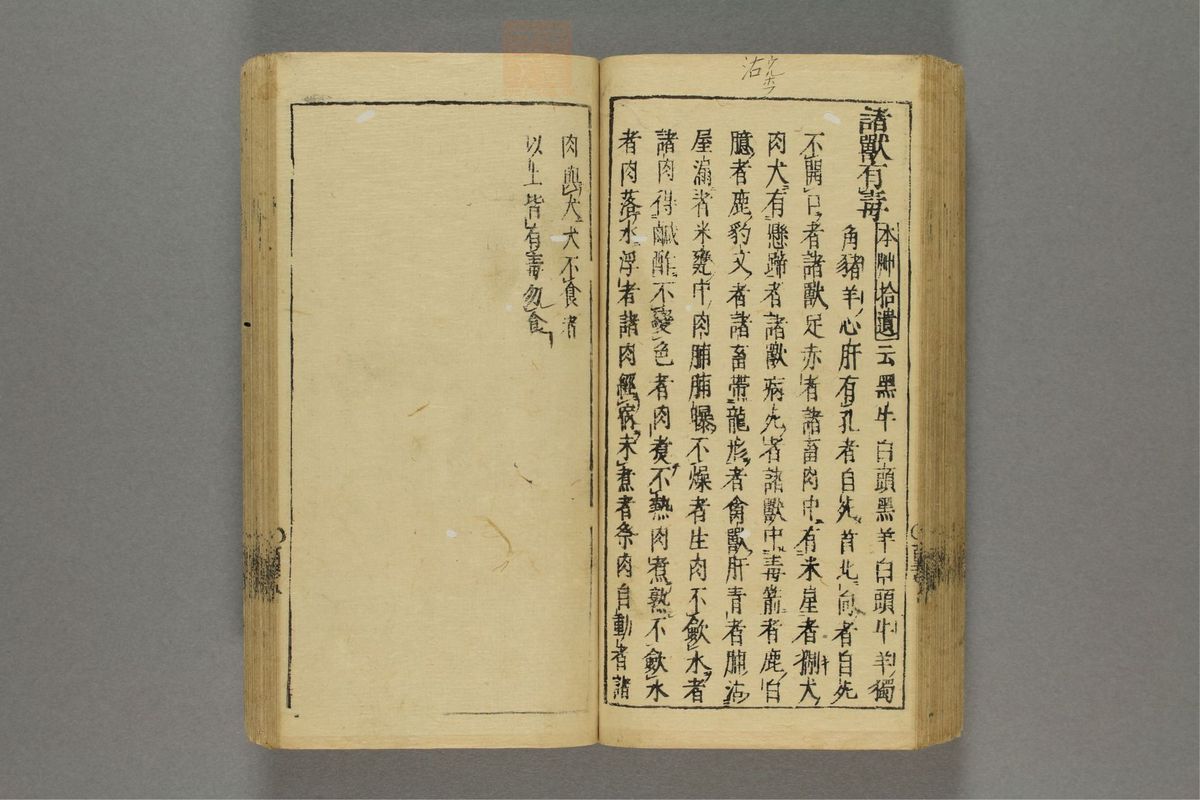 諸獸有毒
本艸拾遺云黑牛白頭黑羊白頭牛羊獨
角豬羊心肝有孔者自死首北向者自死
不開口者諸獸足赤者諸畜肉中有米星者猘犬
肉犬有懸蹄者諸獸病死者諸獸中毒箭者鹿白
臆者鹿豹文者諸畜帶龍形者禽獸肝青者脯沾
屋漏者米甕中肉脯脯曝不燥者生肉不斂水者
諸肉得鹹酢不變色者肉煮不熟肉煮熟不斂水
者肉落水浮者諸肉經宿未煮者祭肉自動者諸
肉與犬犬不食者
以上皆有毒勿食
沾